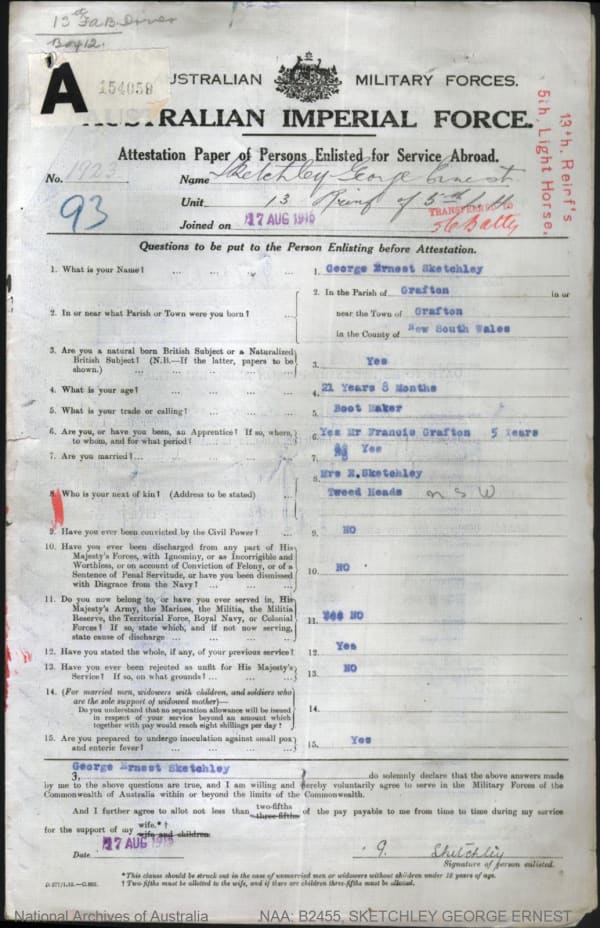 13th F.A.B.
A
154059
AUSTRALIAN MILITARY FORCES.
AUSTRALIAN IMPERIAL FORCE.
Attestation Paper of Persons Enlisted for Service Abroad.
No. 1923 Name Sketchley George Ernest
93
Unit 13 Reinf of 5th L H
TRANSFERRED TO
Joined on 17 AUG 1915
13th. Reinf's
5th. Light Horse.
Questions to be put to the Person Enlisting before Attestation.
1. What is your Name? ... ... ... ... 1. George Ernest Sketchley
2. In or near what Parish or Town were you born? ... 2. In the Parish of Grafton in or
near the Town of Grafton
in the County of New South Wales
3. Are you a natural born British Subject or a Naturalized
British Subject? (N.B.—If the latter, papers to be
shown.) ... ... ... ... 3. Yes
4. What is your age? ... ... ... ... 4. 21 Years 8 Months
5. What is your trade or calling? ... ... ... 5. Boot Maker
6. Are you, or have you been, an Apprentice? If so, where,
to whom, and for what period? ... ... ... 6. Yes Mr Francis Grafton 5 Years
7. Are you married? ... ... ... ... 7. Yes
8. Who is your next of kin? (Address to be stated) ... 8. Mrs E.Sketchley
Tweed Heads N S W
9. Have you ever been convicted by the Civil Power? ... 9. NO
10. Have you ever been discharged from any part of His
Majesty's Forces, with Ignominy, or as Incorrigible and
Worthless, or on account of Conviction of Felony, or of a
Sentence of Penal Servitude, or have you been dismissed
with Disgrace from the Navy? ... ... ... 10. NO
11. Do you now belong to, or have you ever served in, His
Majesty's Army, the Marines, the Militia, the Militia
Reserve, the Territorial Force, Royal Navy, or Colonial
Forces? If so, state which, and if not now serving,
state cause of discharge ... ... ... 11. Yes NO
12. Have you stated the whole, if any, of your previous service? 12. Yes
13. Have you ever been rejected as unfit for His Majesty's
Service? If so, on what grounds? ... ... ... 13. NO
14. (For married men, widowers with children, and soldiers who
are the sole support of widowed mother)—
Do you understand that no separation allowance will be issued
in respect of your service beyond an amount which
together with pay would reach eight shillings per day? 14.
15. Are you prepared to undergo inoculation against small pox
and enteric fever? ... ... ... ... 15. Yes
George Ernest Sketchley
do solemnly declare that the above answers made
by me to the above questions are true, and I am willing and hereby voluntarily agree to serve in the Military Forces of the
Commonwealth of Australia within or beyond the limits of the Commonwealth.
And I further agree to allot not less than two-fifths three-fifths of the pay payable to me from time to time during my service
for the support of my wife.*† wife and children.
Date 17 AUG 1915 G. Sketchley
Signature of person enlisted.
*This clause should be struck out in the case of unmarried men or widowers without children under 18 years of age.
† Two-fifths must be allotted to the wife, and if there are children three-fifths must be allowed.
National Archives of Australia NAA: B2455, SKETCHLEY GEORGE ERNEST